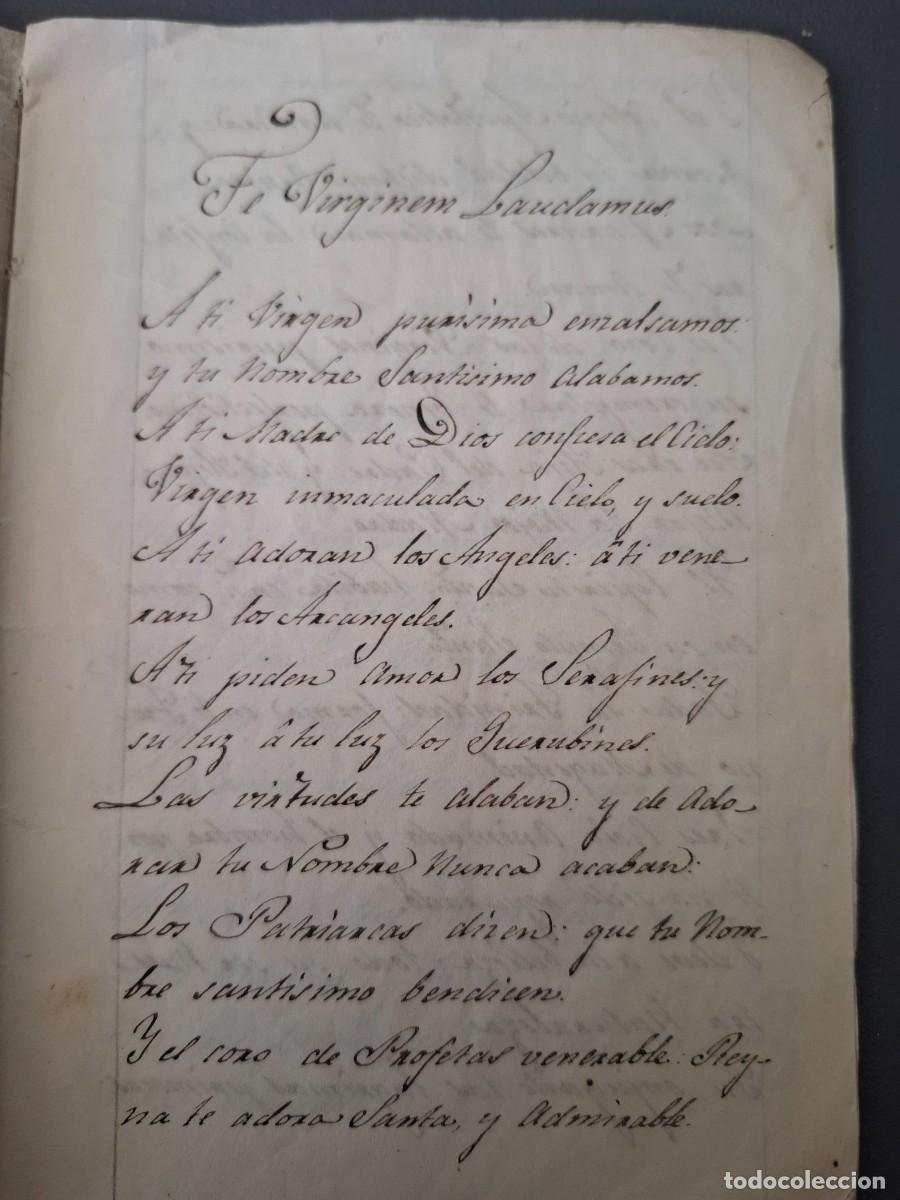 Te Virginem Laudamus.
A ti Virgen purísima enzalsamos:
y tu Nombre Santísimo alabamos.
A ti Madre de Dios confiesa el Cielo:
Virgen inmaculada en Cielo, y suelo.
A ti adoran los Angeles: â ti vene-
ran los Arcangeles.
A ti piden amor los Serafines: y
su luz â tu luz los Querubines.
Las virtudes te alaban: y de Ado-
rar tu Nombre Nunca acaban:
Los Patriarcas dizen: que tu Nom-
bre santísimo bendicen.
Y el coro de Profetas venerable: Rey-
na te adora Santa, y Admirable.
todocoleccion